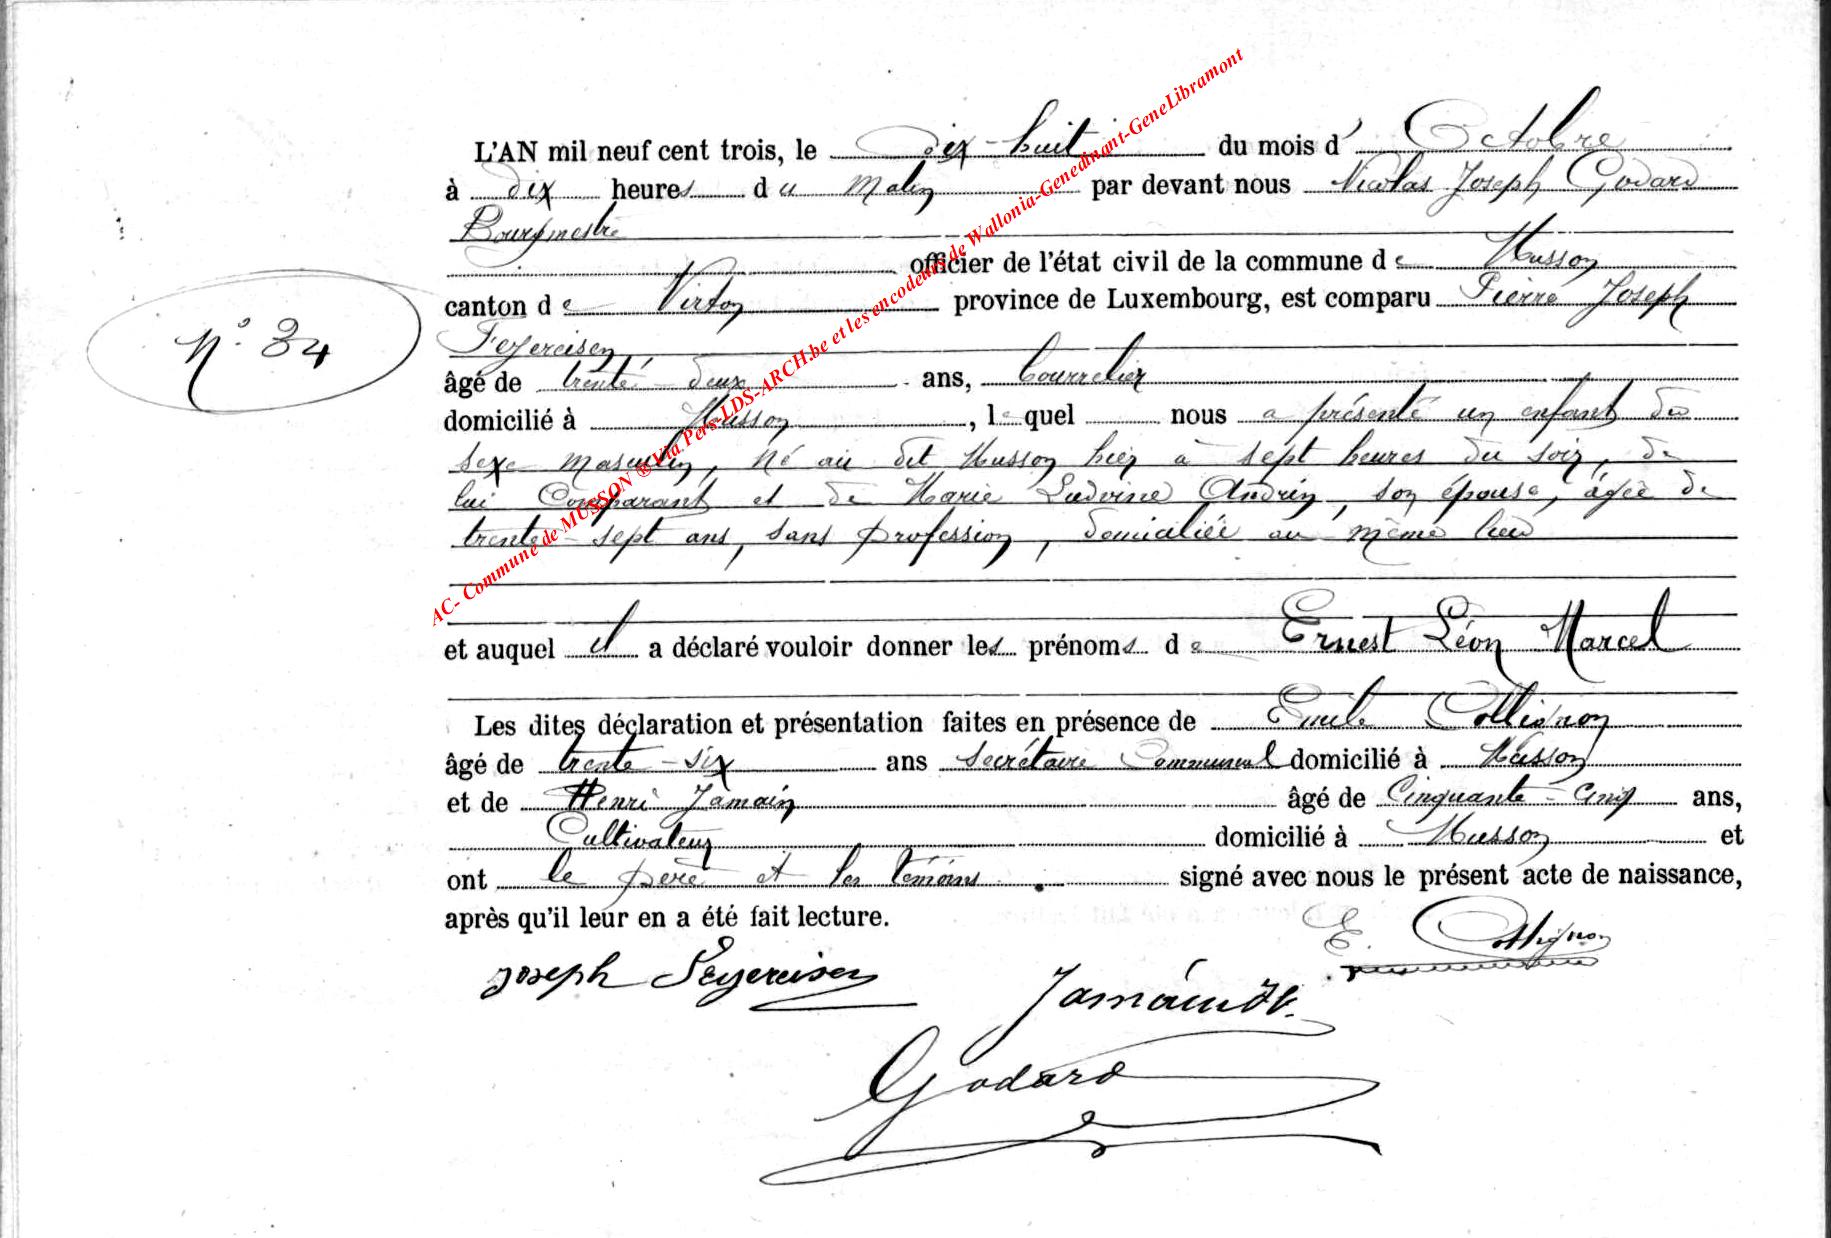 L'AN mil neuf cent trois, le dix-huit du mois d' Octobre
à dix heures du matin par devant nous Nicolas Joseph Godard
Bourgmestre
officier de l'état civil de la commune de Musson
canton de Virton province de Luxembourg, est comparu Pierre Joseph
N° 34
Feyereisen
âgé de trente-deux ans, bourrelier
domicilié à Musson, lequel nous a présenté un enfant du
sexe masculin, né au dit Musson hier à sept heures du soir, de
lui Comparant et de Marie Ludvine Andrin, son épouse, âgée de
trente-sept ans, sans profession, domiciliée au même lieu
et auquel il a déclaré vouloir donner les prénoms de Ernest Léon Marcel
Les dites déclaration et présentation faites en présence de Emile Collignon
âgé de trente-six ans secrétaire Communal domicilié à Musson
et de Henri Jamain âgé de Cinquante-cinq ans,
Cultivateur domicilié à Musson et
ont le père et les témoins signé avec nous le présent acte de naissance,
après qu'il leur en a été fait lecture.
E. Collignon
Joseph Feyereisen
Jamain H.
Godard
AC- Commune de MUSSON ® Via Pers-LDS-ARCH.be et les encodeurs de Wallonia-Genedinant-GeneLibramont